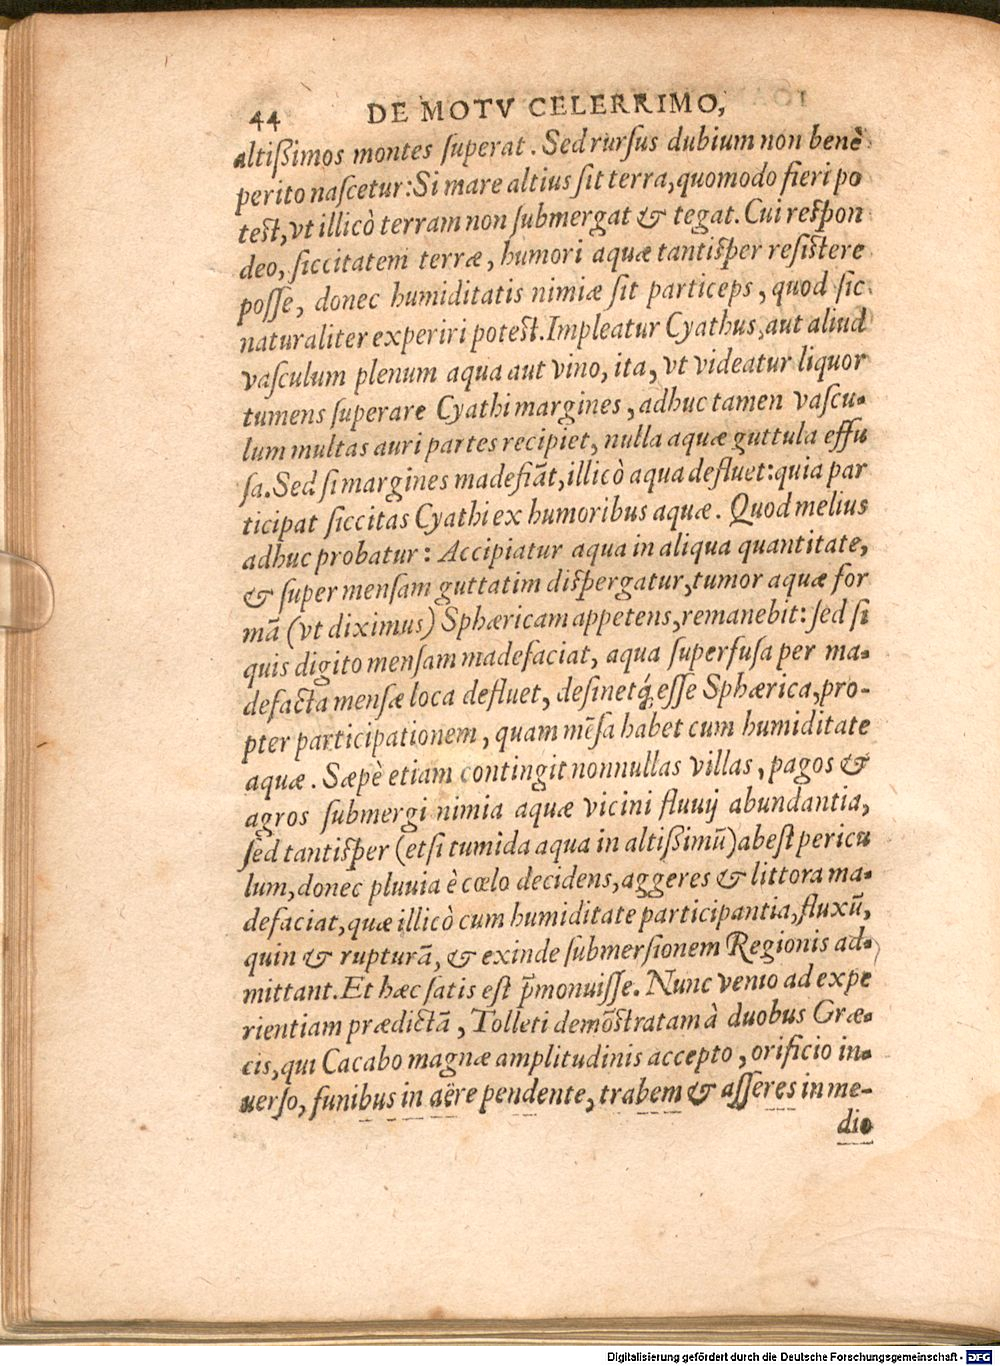 44 DE MOTV CELERRIMO,
altißimos montes ſuperat. Sed rurſus dubium non benè
perito naſcetur: Si mare altius ſit terra, quomodo fieri po
teſt, vt illicò terram non ſubmergat & tegat. Cui reſpon
deo, ſiccitatem terræ, humori aquæ tantiſper reſiſtere
poſſe, donec humiditatis nimiæ ſit particeps, quod ſic
naturaliter experiri poteſt. Impleatur Cyathus, aut aliud
vaſculum plenum aqua aut vino, ita, vt videatur liquor
tumens ſuperare Cyathi margines, adhuc tamen vaſcu-
lum multas auri partes recipiet, nulla aquæ guttula effu
ſa. Sed ſi margines madefiãt, illicò aqua defluet: quia par
ticipat ſiccitas Cyathi ex humoribus aquæ. Quod melius
adhuc probatur: Accipiatur aqua in aliqua quantitate,
& ſuper menſam guttatim diſpergatur, tumor aquæ for
mã (vt diximus) Sphæricam appetens, remanebit: ſed ſi
quis digito menſam madefaciat, aqua ſuperfuſa per ma-
defacta menſæ loca defluet, deſinetq́; eſſe Sphærica, pro-
pter participationem, quam mẽſa habet cum humiditate
aquæ. Sæpè etiam contingit nonnullas villas, pagos &
agros ſubmergi nimia aquæ vicini fluuij abundantia,
ſed tantiſper (etſi tumida aqua in altißimũ) abeſt pericu
lum, donec pluuia è cœlo decidens, aggeres & littora ma-
defaciat, quæ illicò cum humiditate participantia, fluxũ,
quin & rupturã, & exinde ſubmerſionem Regionis ad-
mittant. Et hæc ſatis eſt p̃monuiſſe. Nunc venio ad expe
rientiam prædictã, Tolleti demõſtratam à duobus Græ-
cis, qui Cacabo magnæ amplitudinis accepto, orificio in-
uerſo, funibus in aëre pendente, trabem & aſſeres in me-
dio
Digitalisierung gefördert durch die Deutsche Forschungsgemeinschaft - DFG